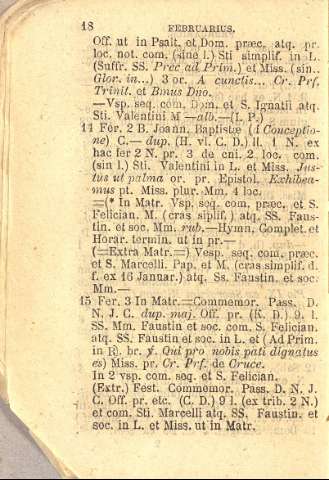 18 FEBRUARIUS.
Off. ut in Psalt. et Dom. præc. atq. pr.
loc. not. com. (sine l.) Sti simplif. in L.
(Suffr. SS. Prec ad Prim.) et Miss. (sin..
Glor. in...) 3 or. A cunctis... Cr. Prf.
Trinit. et Bmus Dno.
—Vsp. seq. com. Dom. et S. Ignatii atq.
Sti. Valentini M —alb.—(I. P.)
14 Fer. 2 B. Joann. Baptistæ (á Conceptio-
ne) C.— dup. (H. vl. C. D.) ll. 1 N. ex
hac fer 2 N. pr. 3 de cni. 2. loc. com.
(sin l.) Sti. Valentini in L. et Miss. Jus-
tus ut palma or. pr. Epistol. Exhibea-
mus pt. Miss. plur. Mm. 4 loc.
=(* In Matr. Vsp. seq. com. præc. et S.
Felician. M. (cras siplif.) atq. SS. Faus-
tin. et soc. Mm. rub.—Hymn. Complet. et
Horar. termin. ut in pr.—
(=Extra Matr.=) Vesp. seq. com. præc.
et S. Marcelli. Pap. et M. (cras simplif. d.
f. ex 16 Januar.) atq. Ss. Faustin. et soc.
Mm.—
15 Fer. 3 In Matr.=Commemor. Pass. D.
N. J. C. dup. maj. Off. pr. (K. D.) 9. l.
SS. Mm. Faustin et soc. com. S. Felician.
atq. SS. Faustin et soc. in L. et (Ad Prim.
in ℟. br. ℣. Qui pro nobis pati dignatus
es) Miss. pr. Cr. Prf. de Cruce.
In 2 vsp. com. seq. et S. Felician.
(Extr.) Fest. Commemor. Pass. D. N. J.
C. Off. pr. etc. (C. D.) 9 l. (ex trib. 2 N.)
et com. Sti. Marcelli atq. SS. Faustin. et
soc. in L. et Miss. ut in Matr.